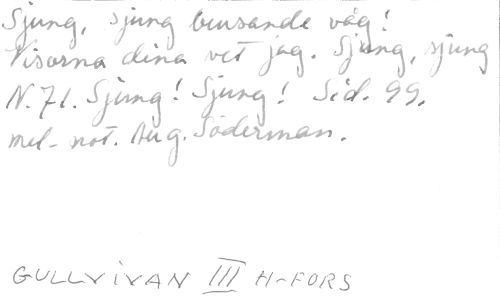 Sjung, sjung brusande våg!
Visorna dina vet jag. Sjung, sjung
N. 71. Sjung! Sjung! Sid. 99.
mel-not. Aug. Söderman.
GULLVIVAN III H-FORS